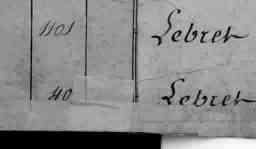 1101 Lebret
40 Lebret